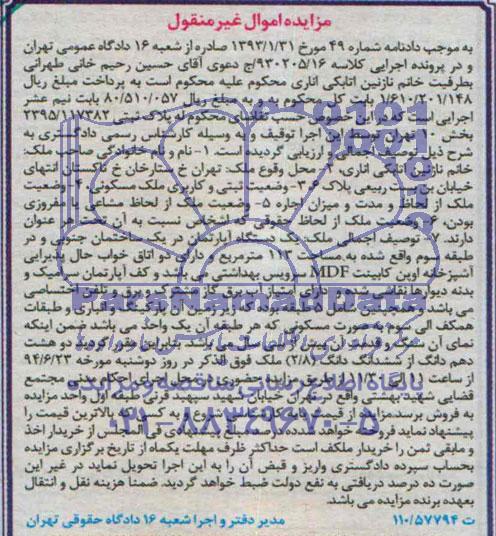 مزایده اموال غیر منقول
به موجب دادنامه شماره ۴۹ مورخ ۱۳۹۳/۱/۳۱ صادره از شعبه ۱۶ دادگاه عمومی تهران
و در پرونده اجرایی کلاسه ۹۳۰۲۰۵/۱۶/ج دعوی آقای حسین رحیم خانی طهرانی
بطرفیت خانم نازنین اتابکی اناری محکوم علیه محکوم است به پرداخت مبلغ ریال
۱/۶۱۰/۲۰۱/۱۴۸ بابت کل محکوم به و به مبلغ ریال ۸۰/۵۱۰/۰۵۷ بابت نیم عشر
اجرایی است که در این خصوص حسب تقاضای محکوم له پلاک ثبتی ۲۳۹۵/۱۱۷۳۸۲
بخش ۱۰ تهران توسط این اجرا توقیف و به وسیله کارشناس رسمی دادگستری به
شرح ذیل توصیف اجمالی و ارزیابی گردیده است. ۱- نام و نام خانوادگی صاحب ملک:
خانم نازنین اتابکی اناری، ۲- محل وقوع ملک: تهران خ ستارخان خ تاکستان انتهای
خیابان بن بست ربیعی پلاک ۶، ۳- وضعیت ثبتی و کاربری ملک مسکونی، ۴- وضعیت
ملک از لحاظ و مدت و میزان اجاره ۵- وضعیت ملک از لحاظ مشاعی یا مفروزی
بودن، ۶- وضعیت ملک از لحاظ حقوقی که اشخاص نسبت به آن تحت هر عنوان
دارند. ۷- توصیف اجمالی ملک: یک دستگاه آپارتمان در یک ساختمان جنوبی و در
طبقه سوم واقع شده به مساحت ۱۱۲ مترمربع و دارای دو اتاق خواب حال پذیرایی
آشپزخانه اوپن کابینت MDF سرویس بهداشتی می باشد و کف آپارتمان سرامیک و
بدنه دیوارها نقاشی شده و دارای امتیاز آب برق گاز مشترک و برق و تلفن اختصاصی
می باشد و همچنین شامل ۵ طبقه بوده که زیر زمین آن پارکینگ و انباری و طبقات
همکف الی سوم بصورت مسکونی که هر طبقه آن یک واحد می باشد ضمن اینکه
نمای آن سنگ و قدمت آن بیش از سال می باشد. بنابراین مقرر گردید دو هشت
دهم دانگ از ششدانگ دانگ (۲/۸) ملک فوق الذکر در روز دوشنبه مورخه ۹۴/۶/۲۳
از ساعت ۱۱ الی ۱۱/۳۰ از طریق مزایده حضوری در محل اجرای احکام مدنی مجتمع
قضایی شهید بهشتی واقع در تهران خیابان شهید سپهبد قرنی طبقه اول واحد مزایده
به فروش برسد مزایده از قیمت پایه کارشناسی شروع و به کسانی که بالاترین قیمت را
پیشنهاد نماید فروخته خواهد شد ده درصد مبلغ پیشنهادی فی المجلس از خریدار اخذ
و مابقی ثمن را خریدار ملکف است حداکثر ظرف مهلت یکماه از تاریخ برگزاری مزایده
بحساب سپرده دادگستری واریز و قبض آن را به این اجرا تحویل نماید در غیر این
صورت ده درصد دریافتی به نفع دولت ضبط خواهد گردید. ضمنا هزینه نقل و انتقال
بعهده برنده مزایده می باشد.
ت ۱۱۰/۵۷۷۹۴ مدیر دفتر و اجرا شعبه ۱۶ دادگاه حقوقی تهران
ParsNamadData
پایگاه اطلاع رسانی مناقصه و مزایده
۰۲۱-۸۸۳۴۹۶۷۰-۵